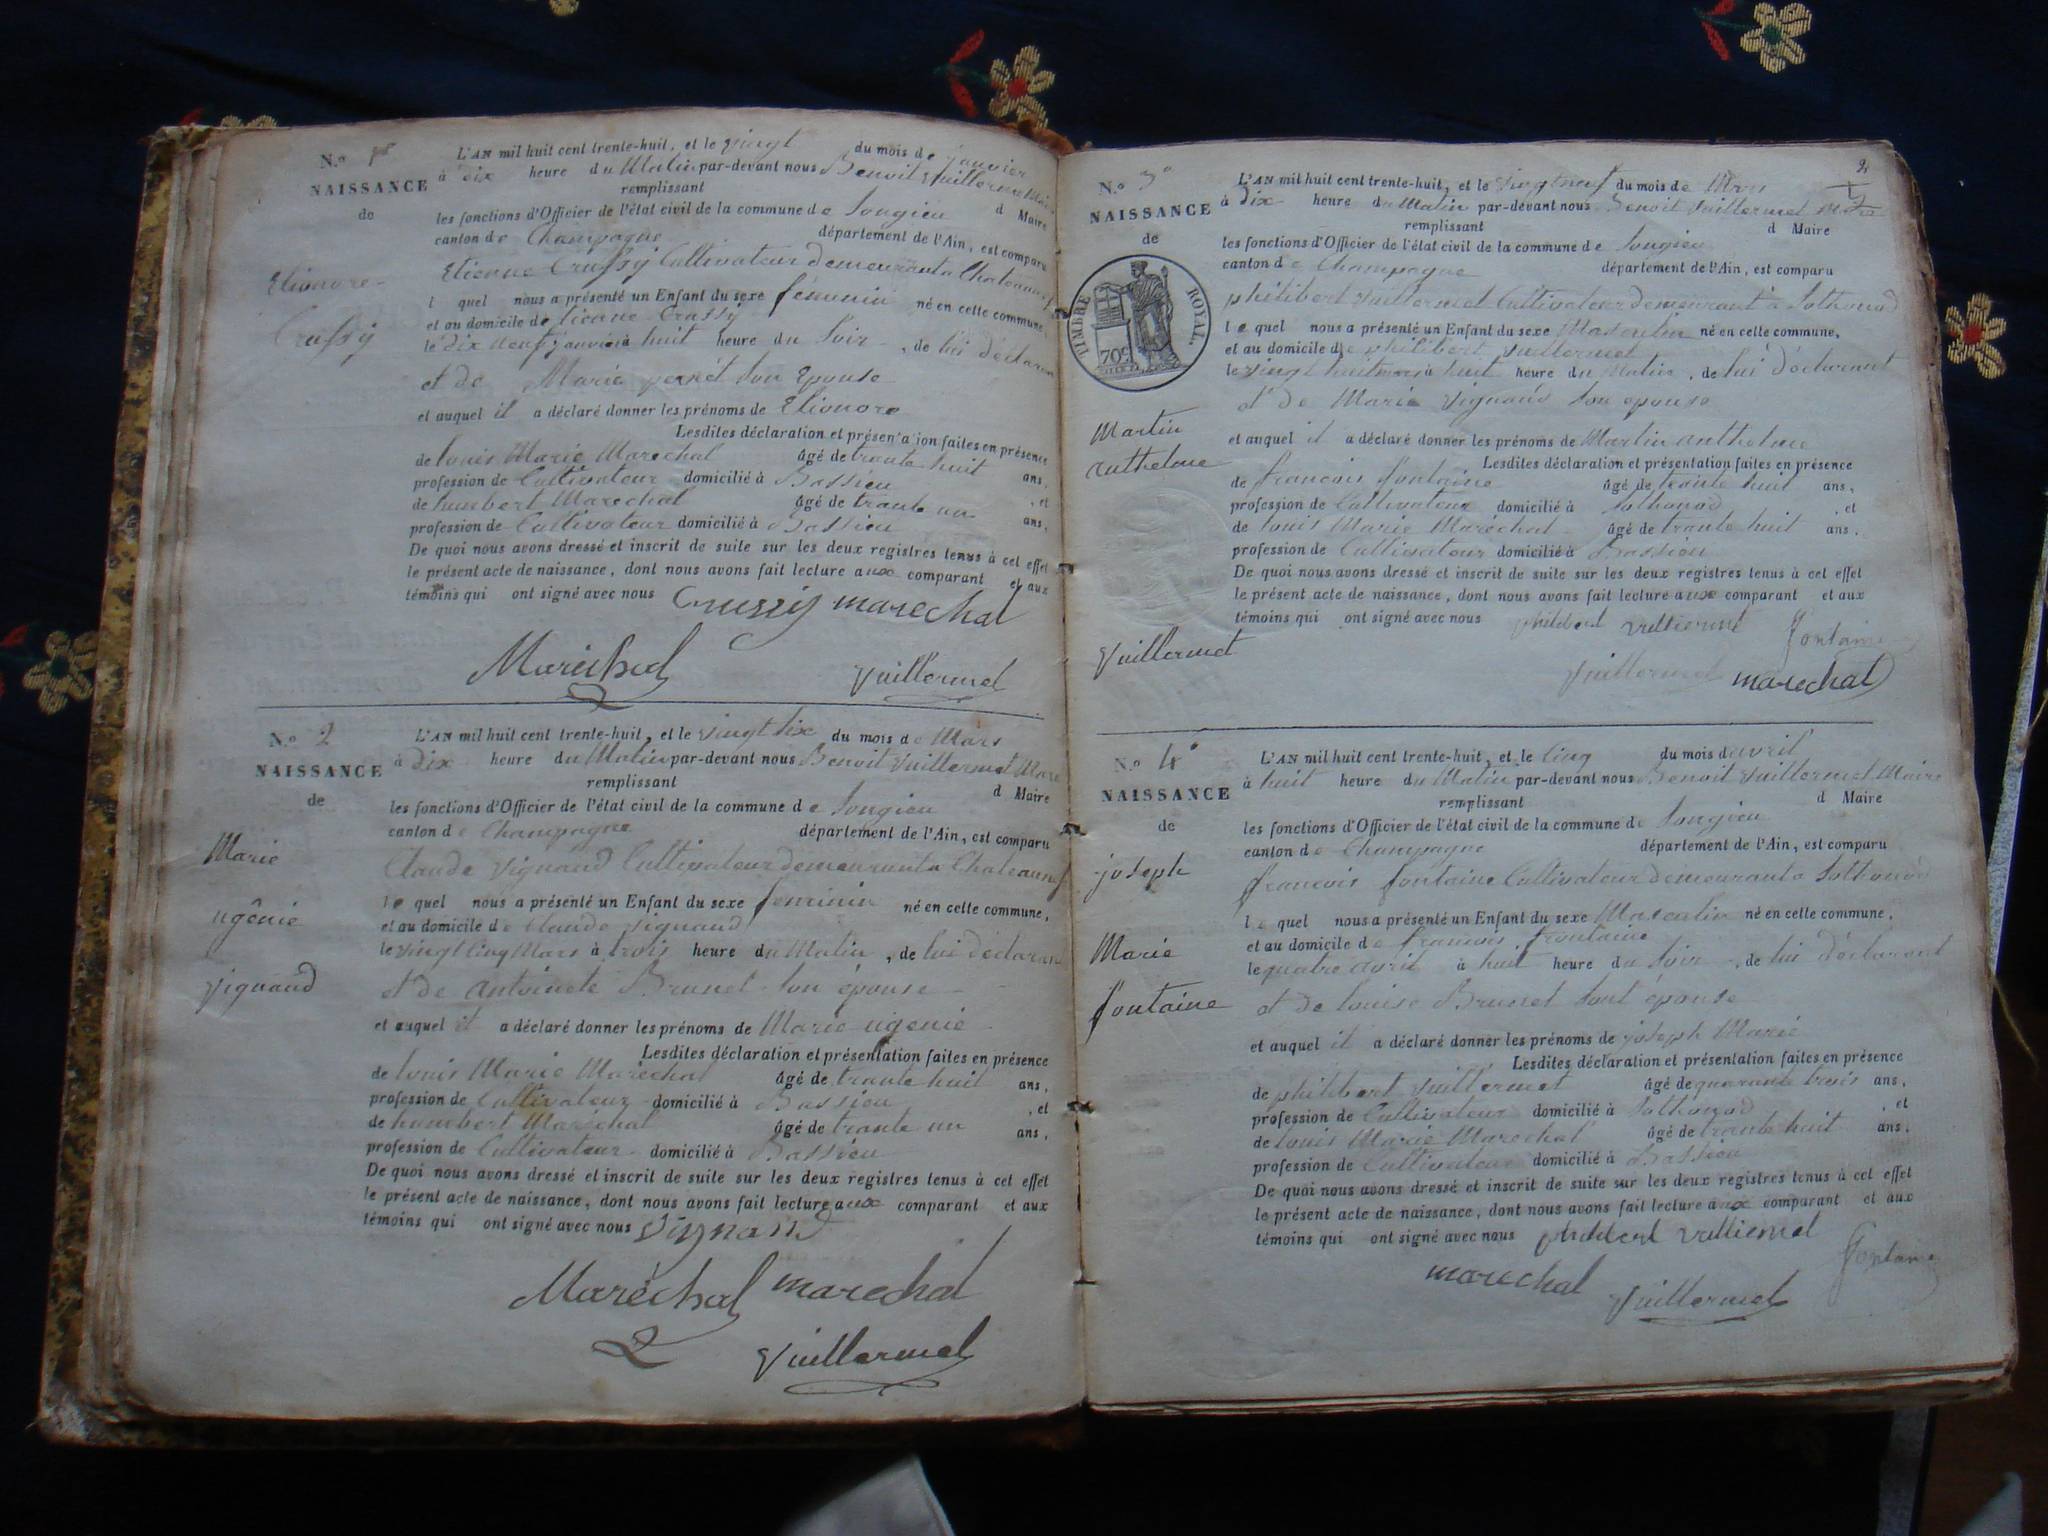 N.o 1er
NAISSANCE
de
Elionore
Crussy
L'AN mil huit cent trente-huit, et le vingt du mois de janvier
à dix heure du Matin par-devant nous Benoit Vuillermet Maire
remplissant d Maire
les fonctions d'Officier de l'état civil de la commune de Songieu
canton de Champagne département de l'Ain, est comparu
Etienne Crussy Cultivateur demeurant a Chateauneuf
l quel nous a présenté un Enfant du sexe féminin né en cette commune,
et au domicile de Etienne Crussy
le dix neuf janvier à huit heure du Soir, de lui déclarant
et de Marie perret Son Epouse
et auquel il a déclaré donner les prénoms de Elionore
Lesdites déclaration et présentation faites en présence
de louis Marie Marechal âgé de trante huit ans,
profession de Cultivateur domicilié à Bassieu , et
de humbert Marechal âgé de trante un ans,
profession de Cultivateur domicilié à Bassieu
De quoi nous avons dressé et inscrit de suite sur les deux registres tenus à cet effet
le présent acte de naissance, dont nous avons fait lecture aux comparant et aux
témoins qui ont signé avec nous Crussy marechal
Maréchal Vuillermet
N.o 2
NAISSANCE
de
Marie
ugênie
Vignand
L'AN mil huit cent trente-huit, et le vingt six du mois de Mars
à dix heure du Matin par-devant nous Benoit Vuillermet Maire
remplissant d Maire
les fonctions d'Officier de l'état civil de la commune de Songieu
canton de Champagne département de l'Ain, est comparu
Claude Vignand Cultivateur demeurant a Chateauneuf
le quel nous a présenté un Enfant du sexe feminin né en cette commune,
et au domicile de Claude Vignand
le vingt cinq Mars à trois heure du Matin, de lui déclarant
et de antoinete Brunet Son épouse
et auquel il a déclaré donner les prénoms de Marie ugenie
Lesdites déclaration et présentation faites en présence
de louis Marie Maréchal âgé de trante huit ans,
profession de Cultivateur domicilié à Bassieu , et
de humbert Maréchal âgé de trante un ans,
profession de Cultivateur domicilié à Bassieu
De quoi nous avons dressé et inscrit de suite sur les deux registres tenus à cet effet
le présent acte de naissance, dont nous avons fait lecture aux comparant et aux
témoins qui ont signé avec nous Vignand
Maréchal marechal
Vuillermet
2
N.o 3e
NAISSANCE
de
TIMBRE ROYAL.
70c
Martin
anthelme
Vuillermet
L'AN mil huit cent trente-huit, et le vingt neuf du mois de Mars
à Dix heure du Matin par-devant nous Benoit Vuillermet Maire
remplissant d Maire
les fonctions d'Officier de l'état civil de la commune de Songieu
canton de Champagne département de l'Ain, est comparu
philibert Vuillermet Cultivateur demeurant à Sothonod
le quel nous a présenté un Enfant du sexe Masculin né en cette commune,
et au domicile de philibert Vuillermet
le vingt huit mars à huit heure du Matin, de lui déclarant
et de Marie Vignand Son épouse
et auquel il a déclaré donner les prénoms de Martin anthelme
Lesdites déclaration et présentation faites en présence
de francois fontaine âgé de trante huit ans,
profession de Cultivateur domicilié à Sothonod , et
de louis Marie Maréchal âgé de trante huit ans,
profession de Cultivateur domicilié à Bassieu
De quoi nous avons dressé et inscrit de suite sur les deux registres tenus à cet effet
le présent acte de naissance, dont nous avons fait lecture aux comparant et aux
témoins qui ont signé avec nous philibert vullermet fontaine
Vuillermet marechal
N.o 4e
NAISSANCE
de
joseph
Marie
fontaine
L'AN mil huit cent trente-huit, et le cinq du mois d avril
à huit heure du Matin par-devant nous Benoit Vuillermet Maire
remplissant d Maire
les fonctions d'Officier de l'état civil de la commune de Songieu
canton de Champagne département de l'Ain, est comparu
francois fontaine Cultivateur demeurant a Sothonod
le quel nous a présenté un Enfant du sexe Masculin né en cette commune,
et au domicile de francois fontaine
le quatre avril à huit heure du Soir, de lui déclarant
et de louise Brunet Sont épouse
et auquel il a déclaré donner les prénoms de joseph Marie
Lesdites déclaration et présentation faites en présence
de philibert Vuillermet âgé de quarante trois ans,
profession de Cultivateur domicilié à Sothonod , et
de louis Marie Marechal âgé de trante huit ans,
profession de Cultivateur domicilié à Bassieu
De quoi nous avons dressé et inscrit de suite sur les deux registres tenus à cet effet
le présent acte de naissance, dont nous avons fait lecture aux comparant et aux
témoins qui ont signé avec nous philibert vulliermet fontaine
marechal Vuillermet